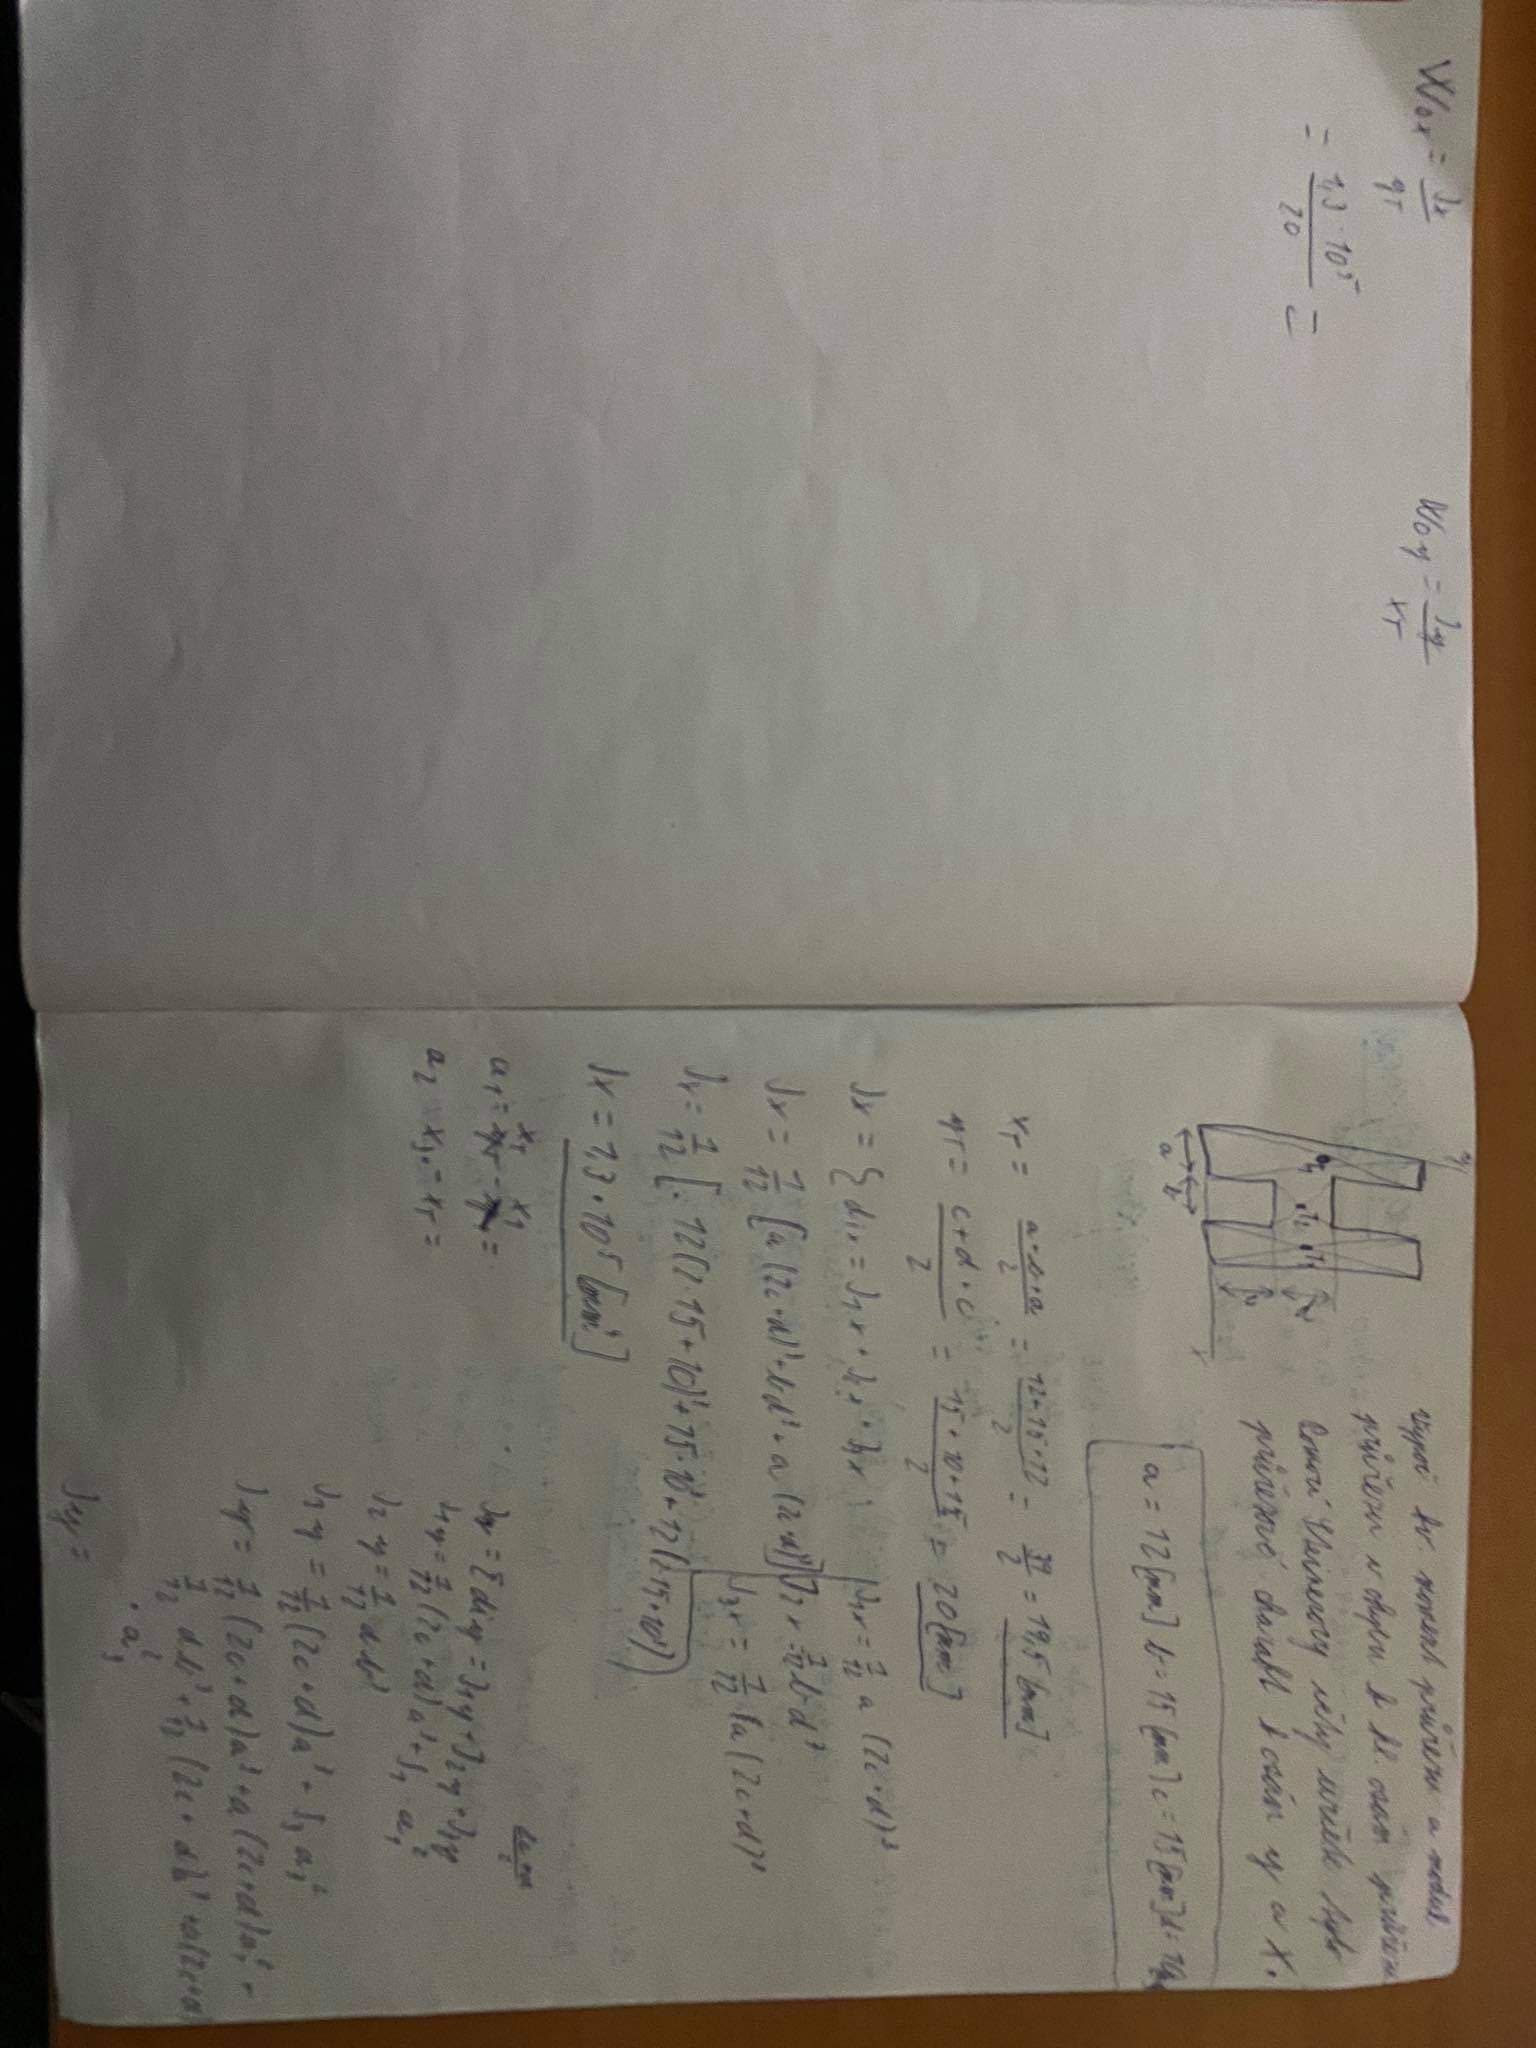 W₀ₓ = Jx / yT
= 1,3 · 10⁵ / 20 =
W₀y = Jy / xT
y
T₁ T₂ T₃
d
c
x
a b
Vypoč kv. moment průřezu a modul
průřezu v ohybu k hl. osám průřezu
Pomocí Steinerovy věty určete tyto
průřezové charakt k osám y a x.
a = 12 [mm] b = 15 [mm] c = 15 [mm] d = 10
xT = (a + b + a) / 2 = (12 + 15 + 12) / 2 = 39 / 2 = 19,5 [mm]
yT = (c + d + c) / 2 = (15 + 10 + 15) / 2 = 20 [mm]
Jx = Σ dix = J₁x + J₂x + J₃x
Jx = 1/12 [a (2c + d)³ + bd³ + a (2c + d)³]
Jx = 1/12 [. 12 (2 · 15 + 10)³ + 15 · 10³ + 12 (2 · 15 + 10³)
Jx = 1,3 · 10⁵ [mm⁴]
J₁x = 1/12 a (2c + d)³
J₂x = 1/12 b d³
J₃x = 1/12 a (2c + d)³
a₁ = xT - x₁ =
a₂ x₃ - xT =
Jy = Σ diy = J₁y + J₂y + J₃y
J₁y = 1/12 (2c + d) a³ + S₁ · a₁²
J₂y = 1/12 d b³
J₃y = 1/12 (2c + d) a³ + S₃ a₃²
Jy = 1/12 (2c + d) a³ + a (2c + d) a₁² +
1/12 d b³ + 1/12 (2c + d) a³ + a (2c + d)
· a₃²
Jy =